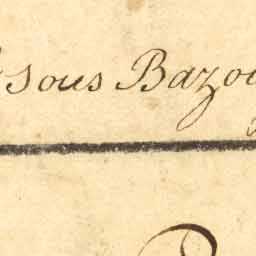 sous Bazo